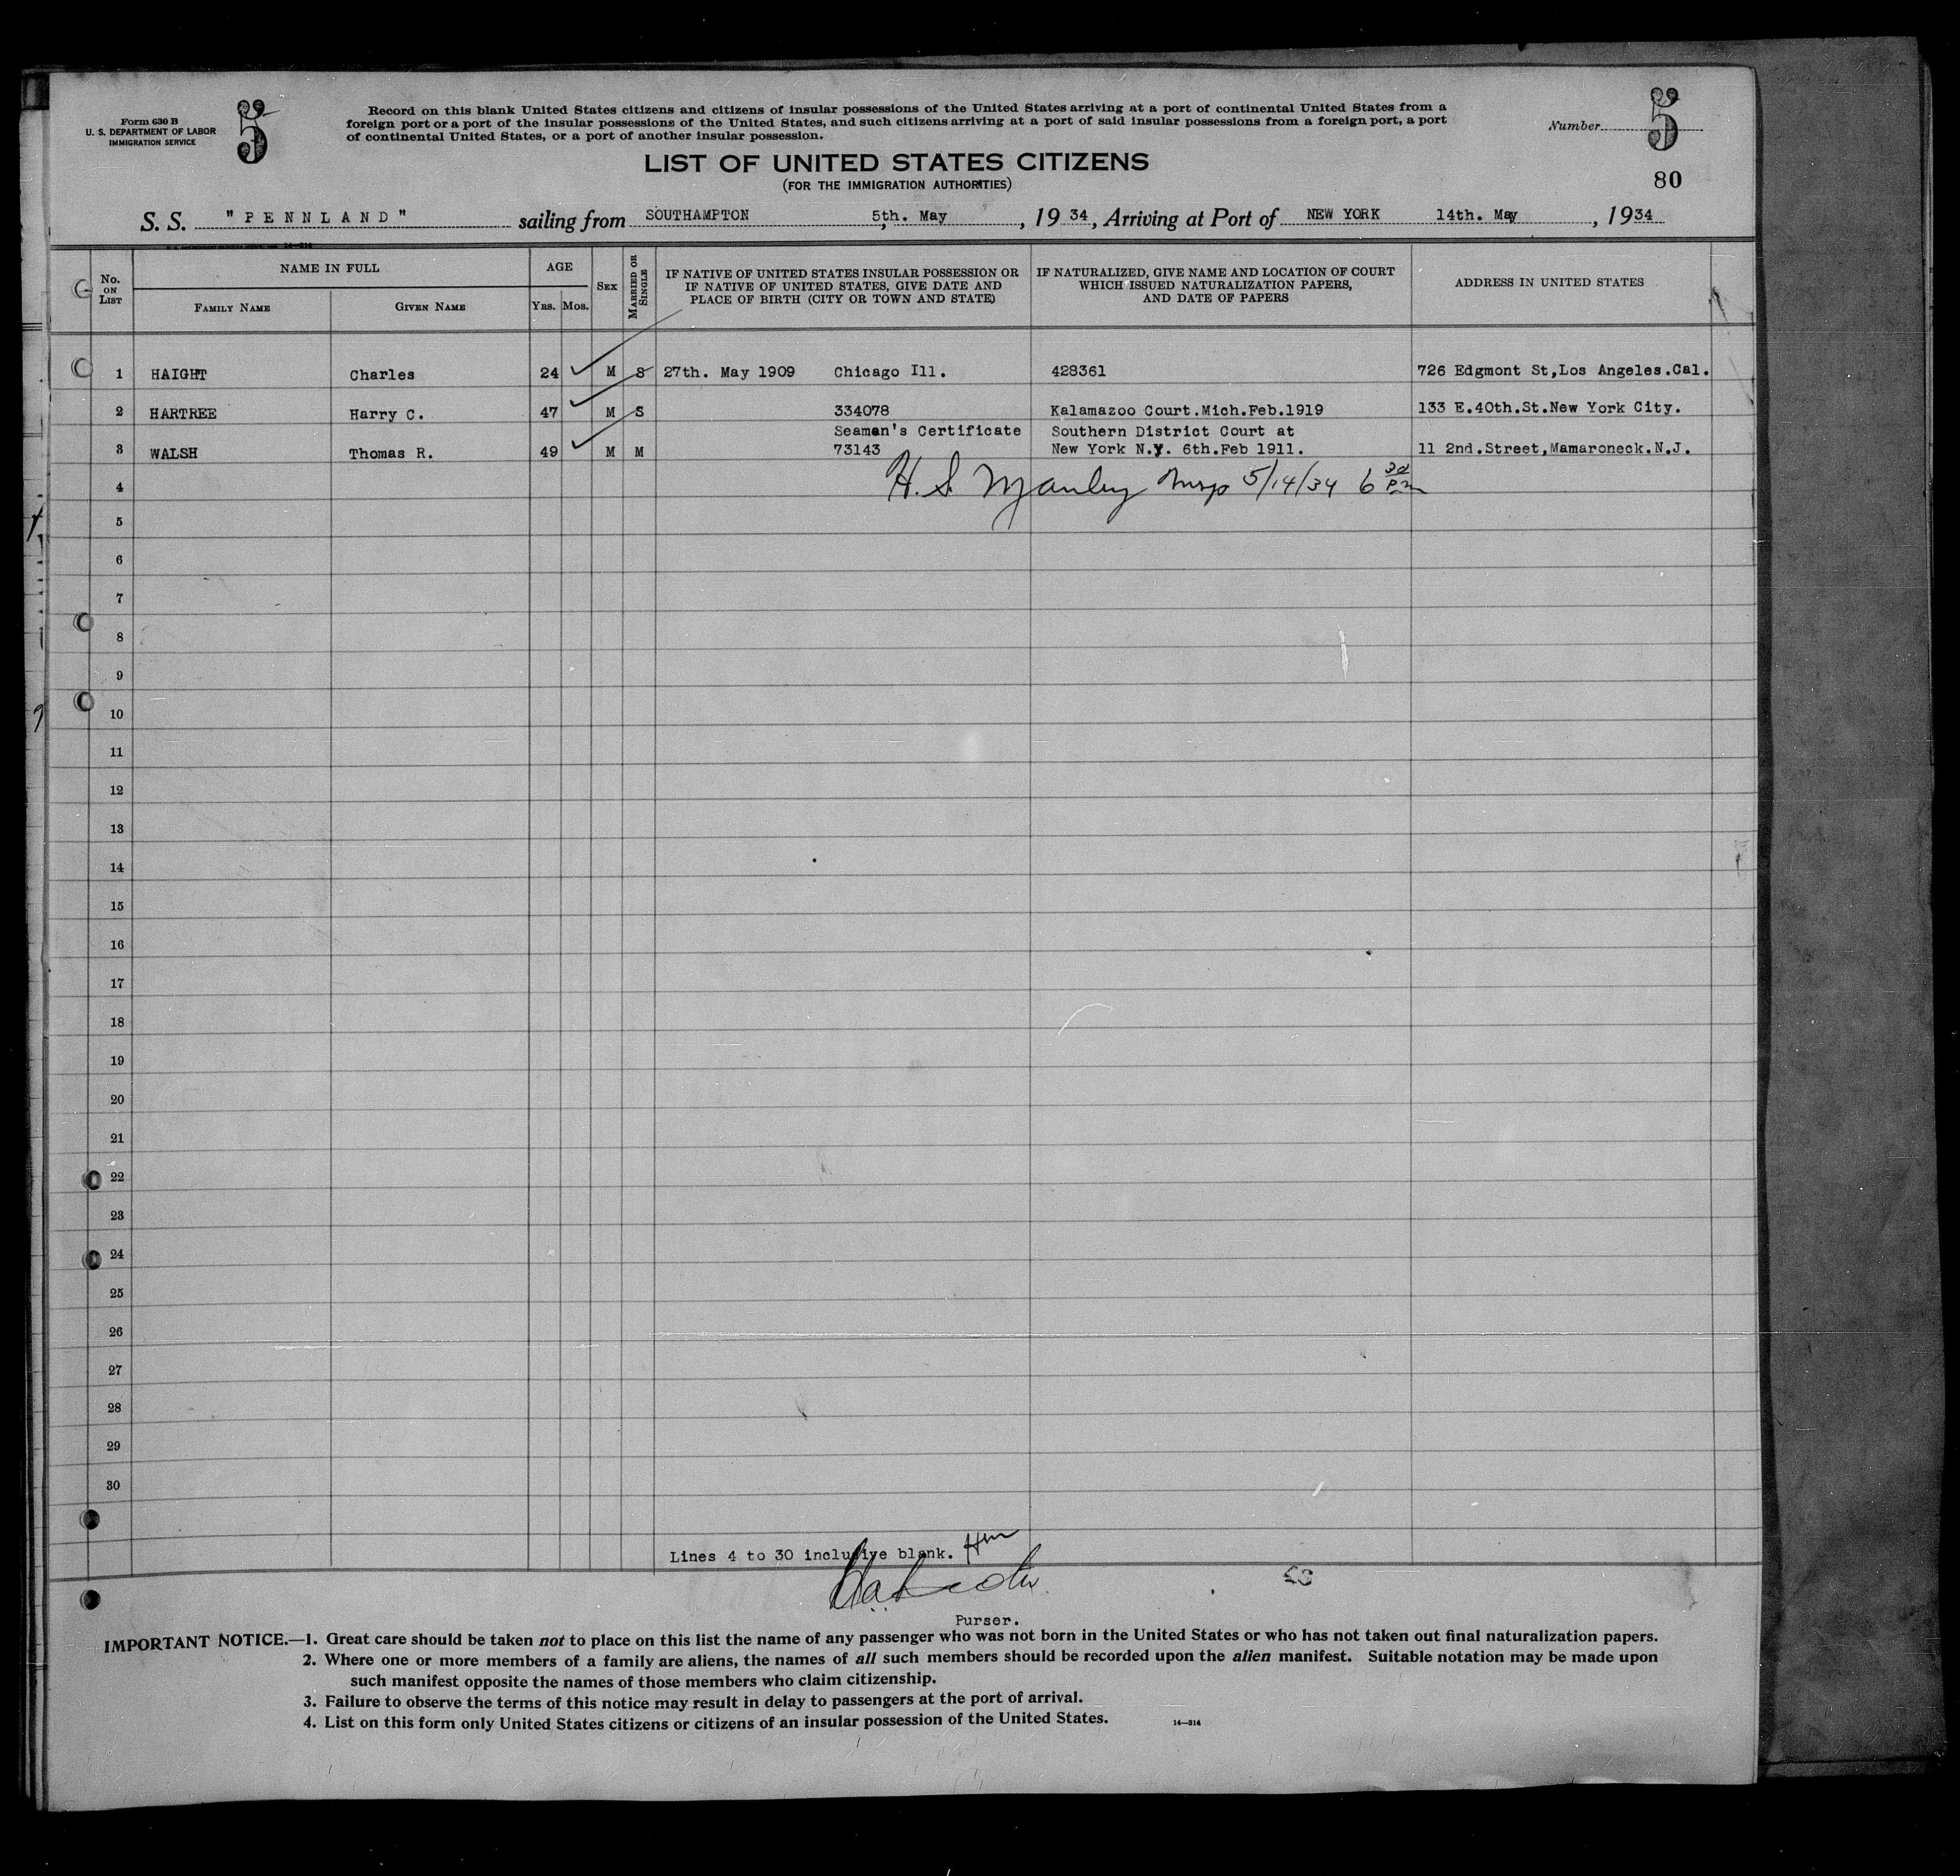 Form 630 B
U. S. DEPARTMENT OF LABOR
IMMIGRATION SERVICE
5
Record on this blank United States citizens and citizens of insular possessions of the United States arriving at a port of continental United States from a
foreign port or a port of the insular possessions of the United States, and such citizens arriving at a port of said insular possessions from a foreign port, a port
of continental United States, or a port of another insular possession.
Number 5
LIST OF UNITED STATES CITIZENS
(FOR THE IMMIGRATION AUTHORITIES)
80
S. S. "PENNLAND" sailing from SOUTHAMPTON 5th. May, 1934, Arriving at Port of NEW YORK 14th. May, 1934
No. ON LIST
NAME IN FULL
FAMILY NAME GIVEN NAME
AGE
YRS. MOS.
SEX
MARRIED OR SINGLE
IF NATIVE OF UNITED STATES INSULAR POSSESSION OR
IF NATIVE OF UNITED STATES, GIVE DATE AND
PLACE OF BIRTH (CITY OR TOWN AND STATE)
IF NATURALIZED, GIVE NAME AND LOCATION OF COURT
WHICH ISSUED NATURALIZATION PAPERS,
AND DATE OF PAPERS
ADDRESS IN UNITED STATES
1 HAIGHT Charles 24 M S 27th. May 1909 Chicago Ill. 428361 726 Edgmont St,Los Angeles.Cal.
2 HARTREE Harry C. 47 M S 334078 Kalamazoo Court.Mich.Feb.1919 133 E.40th.St.New York City.
Seaman's Certificate Southern District Court at
3 WALSH Thomas R. 49 M M 73143 New York N.Y. 6th.Feb 1911. 11 2nd.Street,Mamaroneck.N.J.
4 H. S. Manley Insp 5/14/34 6 30 PM
5
6
7
8
9
10
11
12
13
14
15
16
17
18
19
20
21
22
23
24
25
26
27
28
29
30
Lines 4 to 30 inclusive blank. Hm
Purser.
IMPORTANT NOTICE.—1. Great care should be taken not to place on this list the name of any passenger who was not born in the United States or who has not taken out final naturalization papers.
2. Where one or more members of a family are aliens, the names of all such members should be recorded upon the alien manifest. Suitable notation may be made upon
such manifest opposite the names of those members who claim citizenship.
3. Failure to observe the terms of this notice may result in delay to passengers at the port of arrival.
4. List on this form only United States citizens or citizens of an insular possession of the United States.
14—314